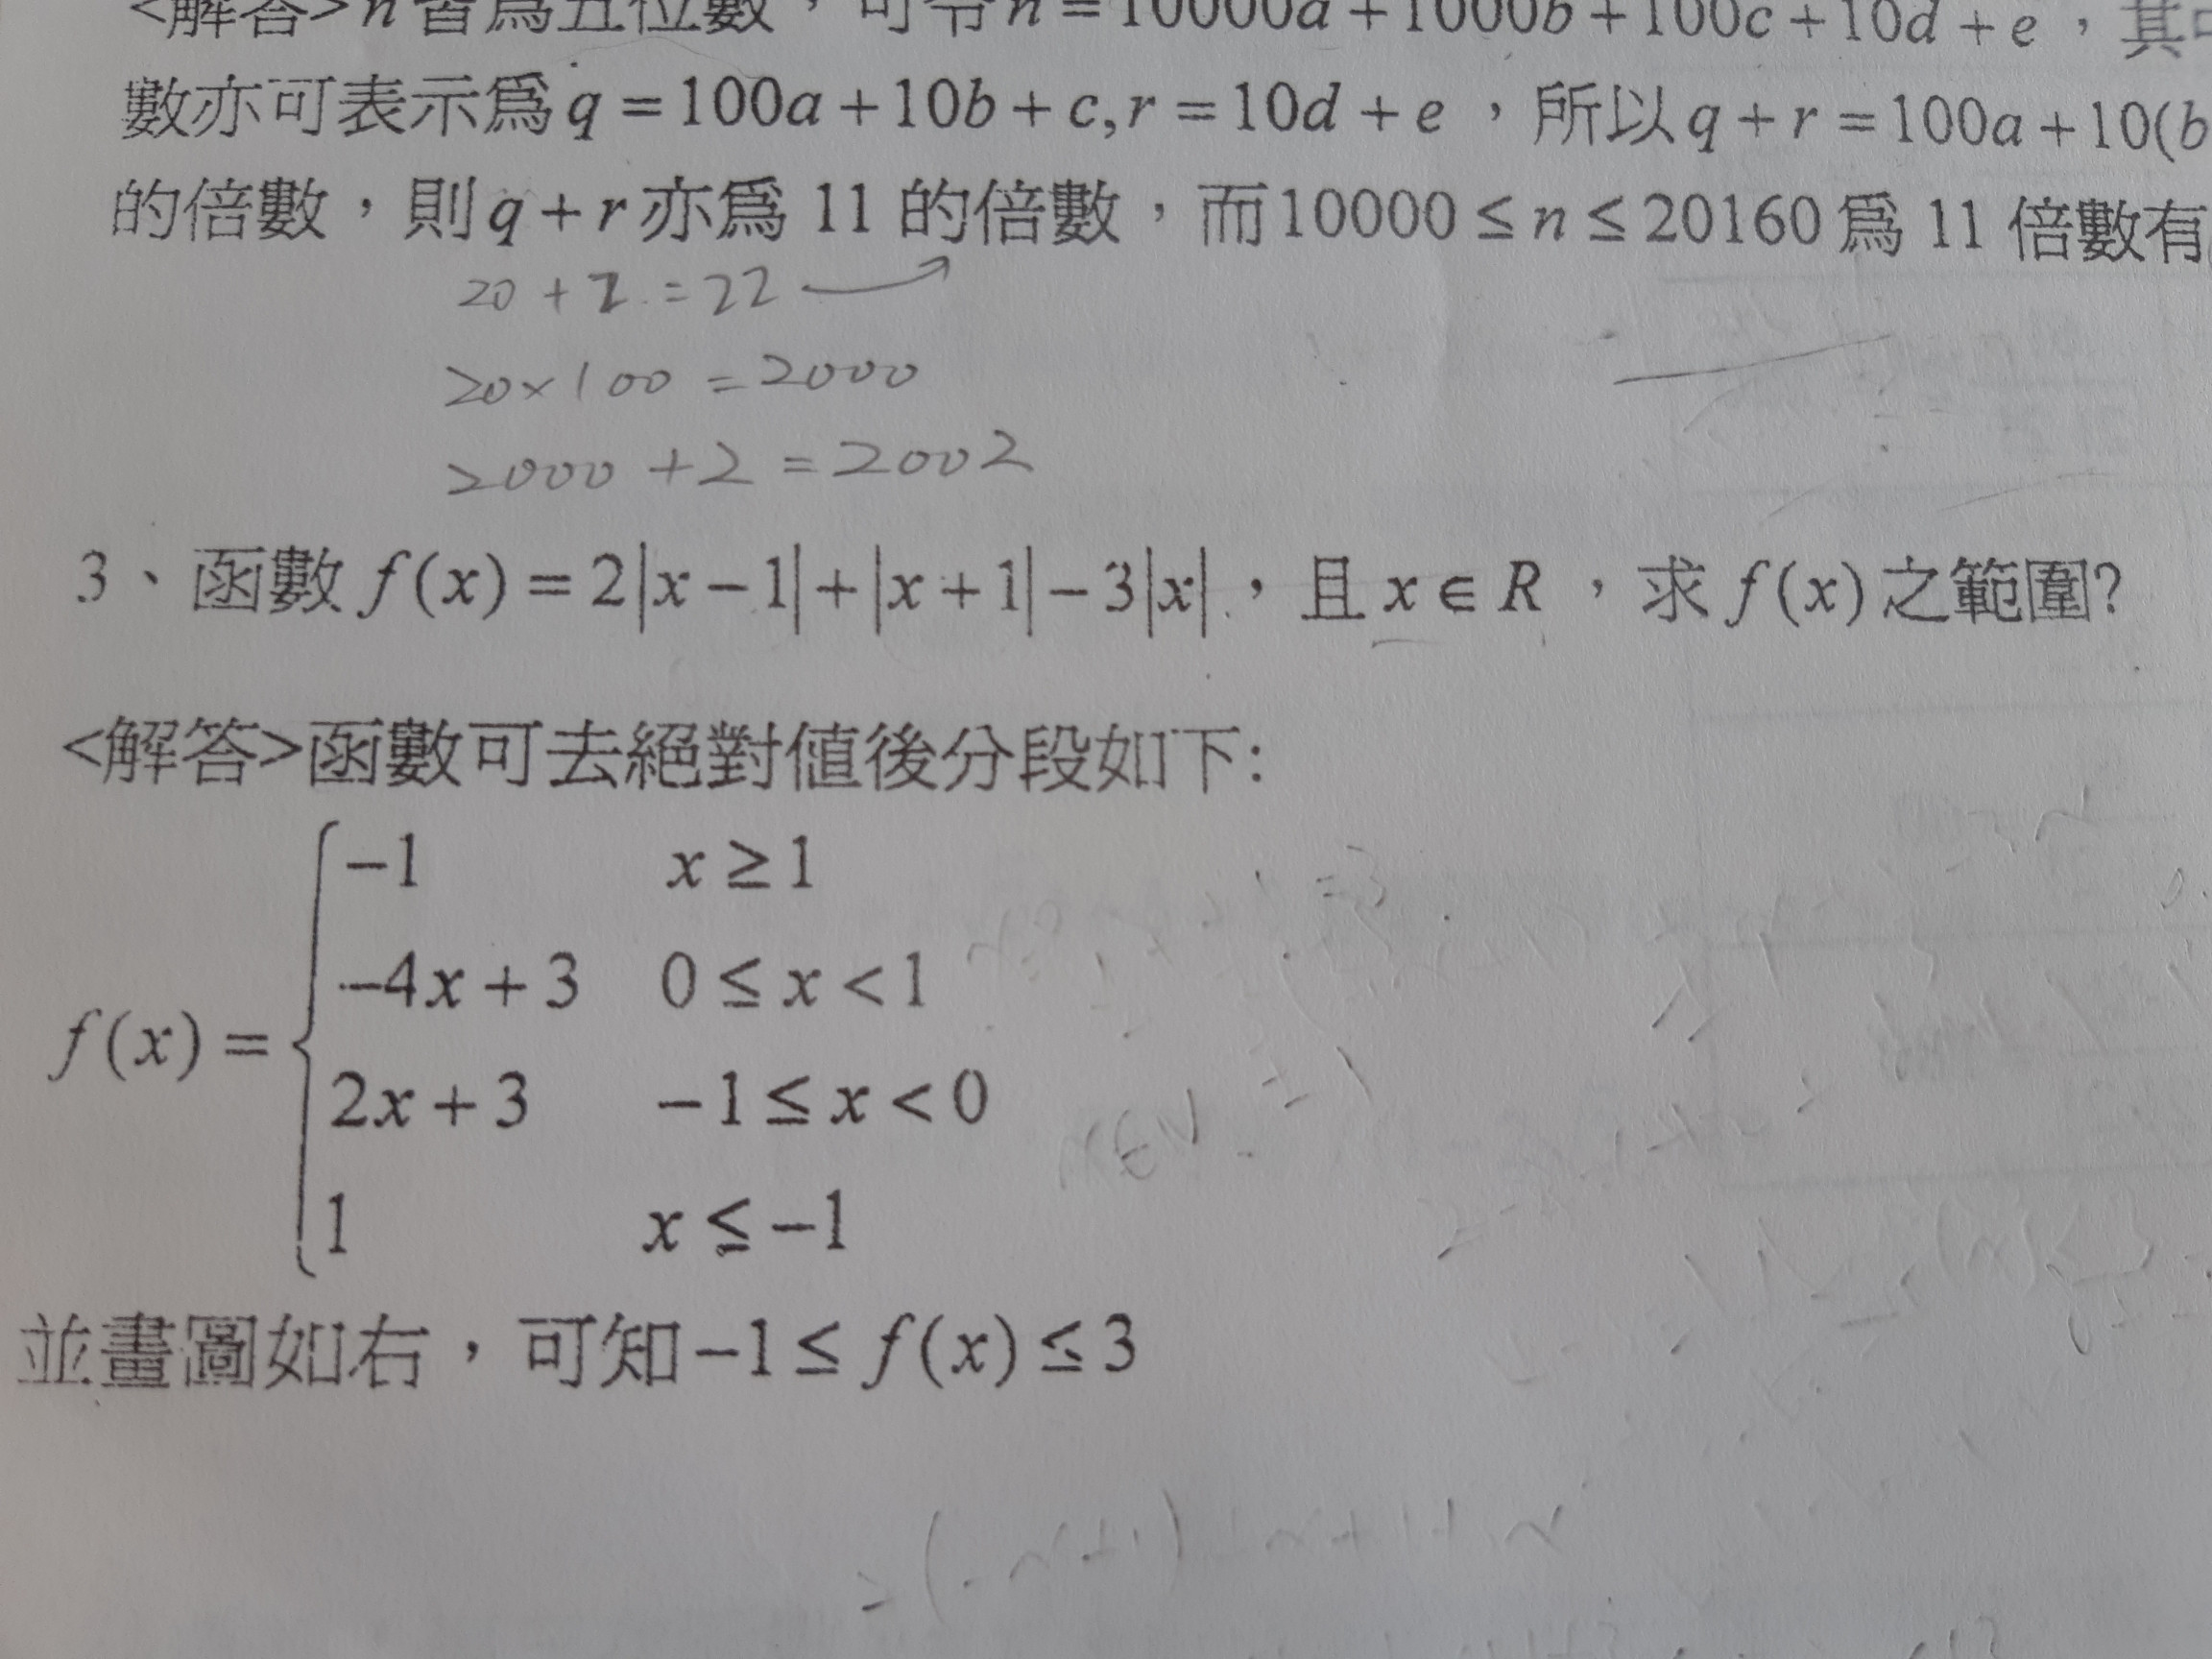 <解答>n皆為五位數，可令n=10000a+1000b+100c+10d+e，其中
數亦可表示為q=100a+10b+c,r=10d+e，所以q+r=100a+10(b
的倍數，則q+r亦為 11 的倍數，而10000≤n≤20160為 11 倍數有
20+2=22
20×100=2000
2000+2=2002
3、函數f(x)=2|x-1|+|x+1|-3|x|，且x∈R，求f(x)之範圍?
<解答>函數可去絕對值後分段如下:
-1 x≥1
-4x+3 0≤x<1
f(x)={
2x+3 -1≤x<0
1 x≤-1
並畫圖如右，可知-1≤f(x)≤3